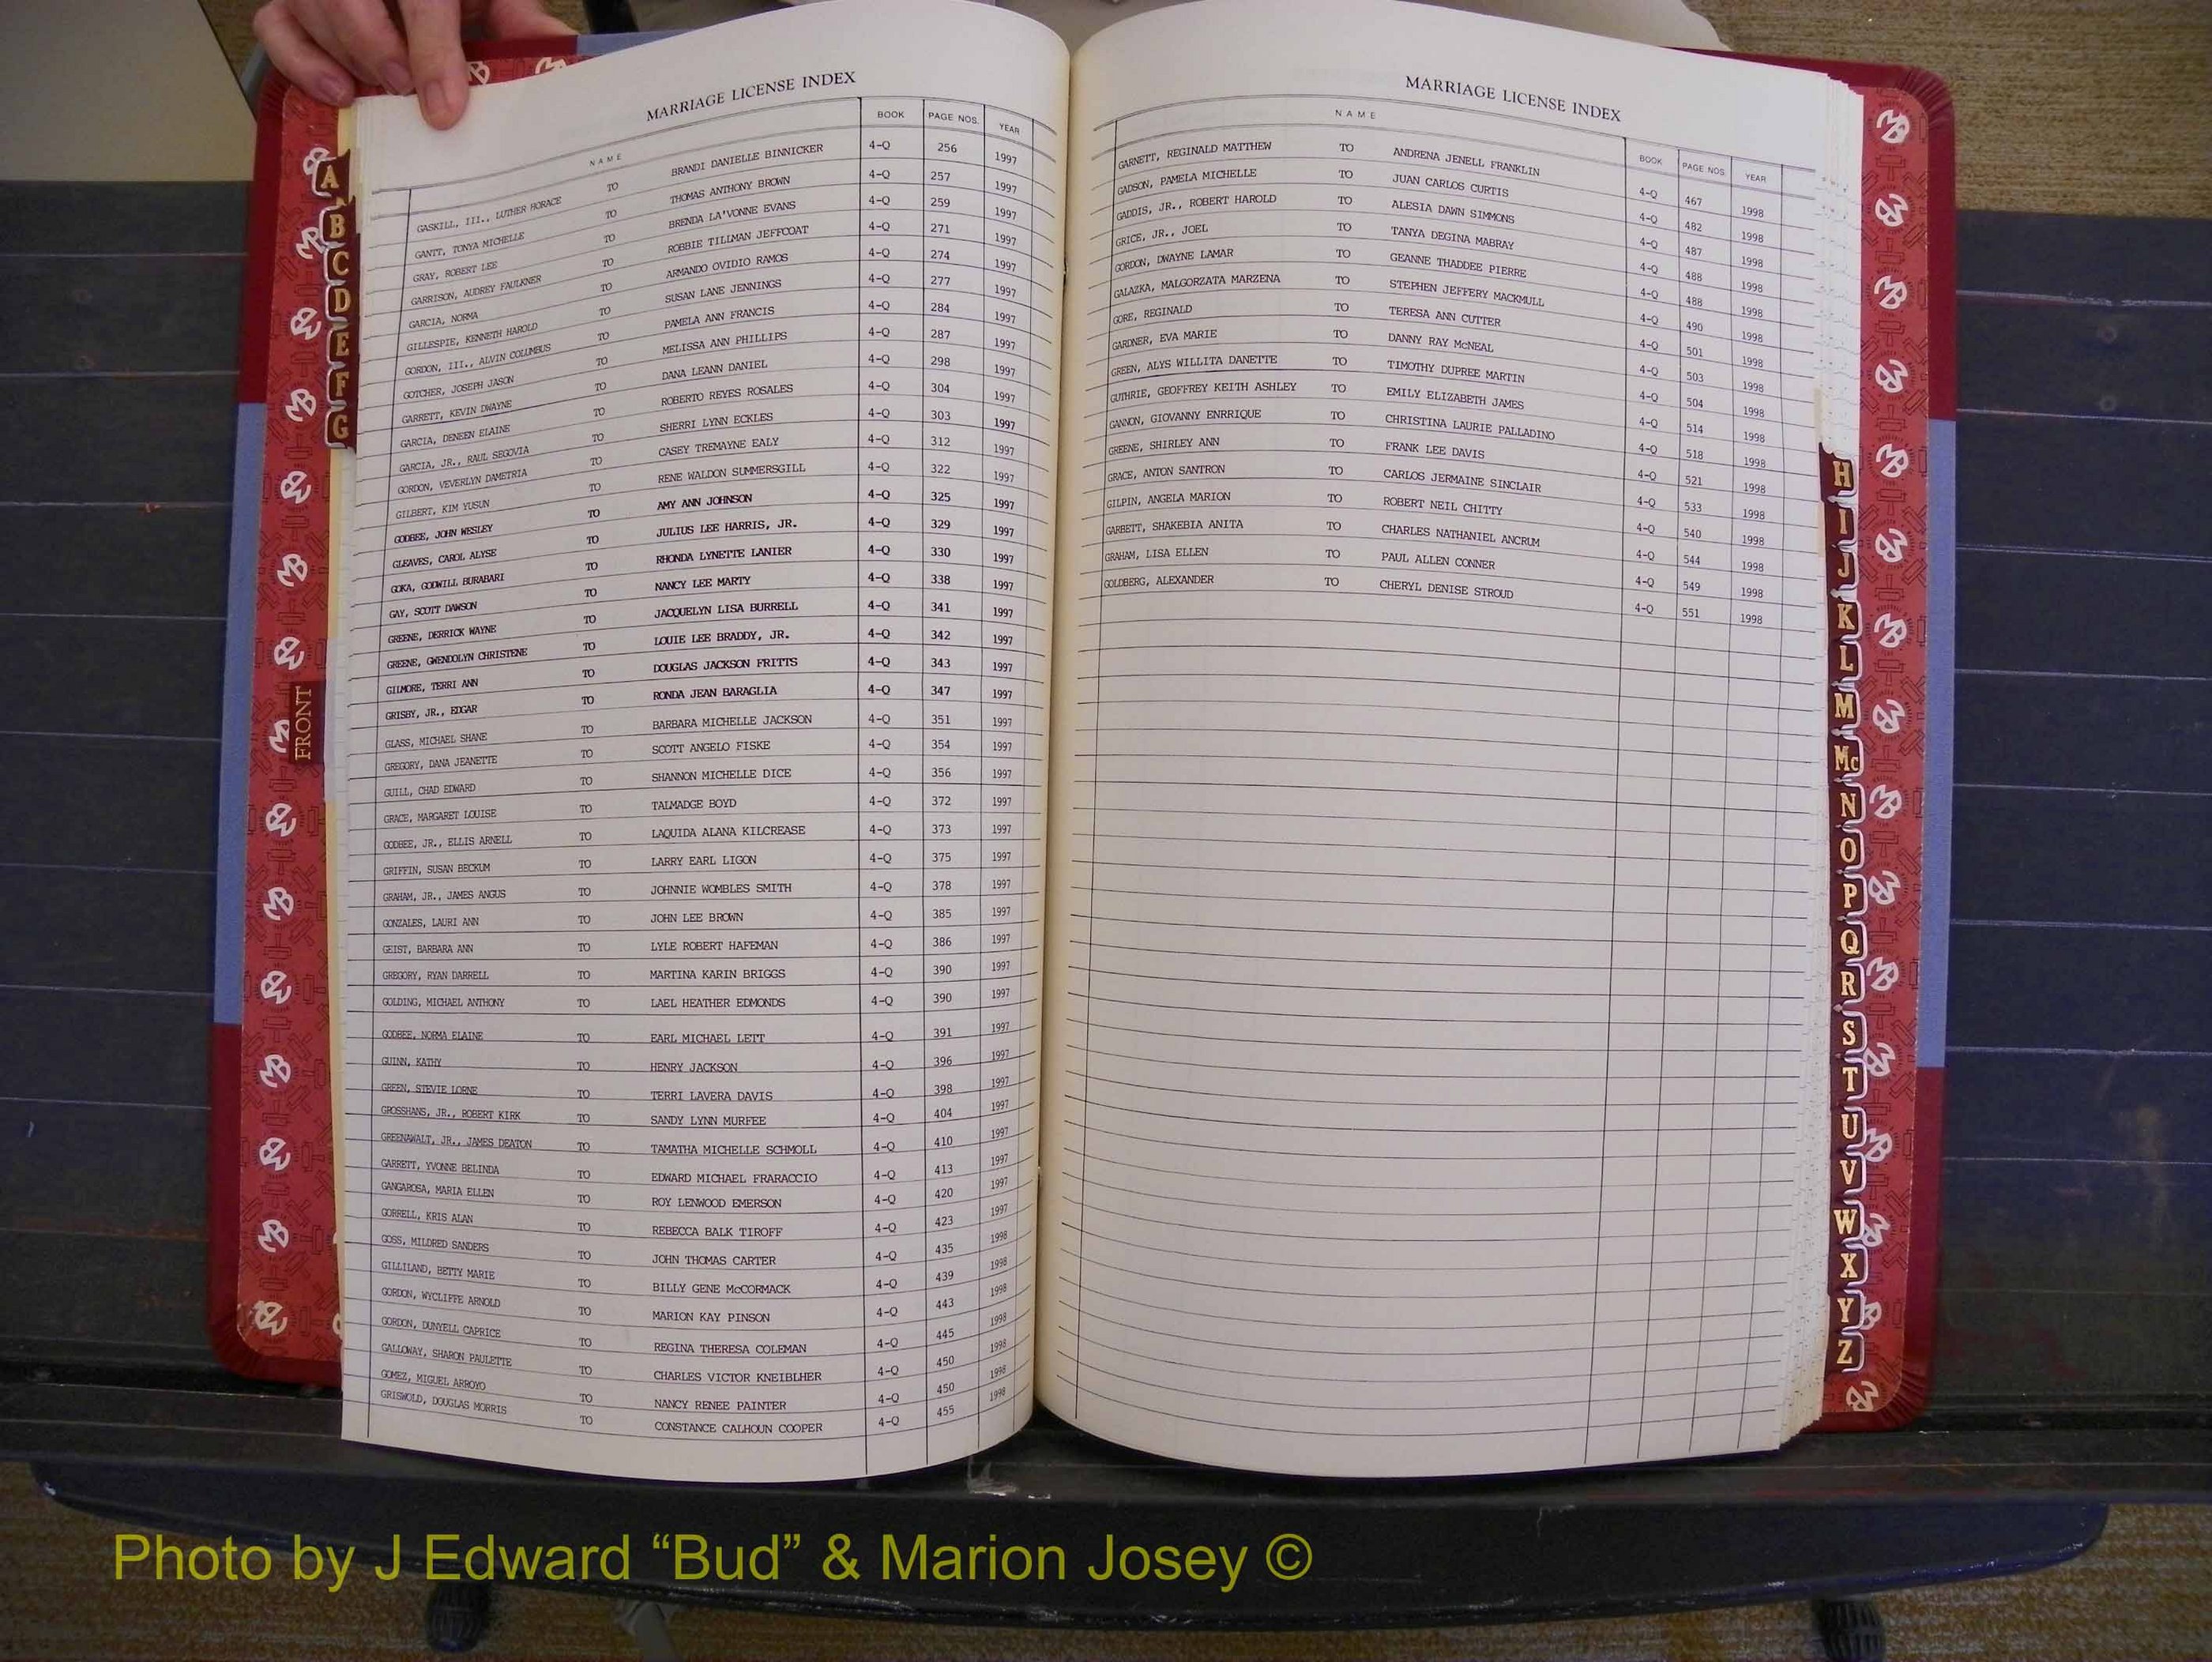 MARRIAGE LICENSE INDEX
NAME BOOK PAGE NOS. YEAR
GASKILL, III., LUTHER HORACE TO BRANDI DANIELLE BINNICKER 4-Q 256 1997
GANTT, TONYA MICHELLE TO THOMAS ANTHONY BROWN 4-Q 257 1997
GRAY, ROBERT LEE TO BRENDA LA'VONNE EVANS 4-Q 259 1997
GARRISON, AUDREY FAULKNER TO ROBBIE TILLMAN JEFFCOAT 4-Q 271 1997
GARCIA, NORMA TO ARMANDO OVIDIO RAMOS 4-Q 274 1997
GILLESPIE, KENNETH HAROLD TO SUSAN LANE JENNINGS 4-Q 277 1997
GORDON, III., ALVIN COLUMBUS TO PAMELA ANN FRANCIS 4-Q 284 1997
GOTCHER, JOSEPH JASON TO MELISSA ANN PHILLIPS 4-Q 287 1997
GARRETT, KEVIN DWAYNE TO DANA LEANN DANIEL 4-Q 298 1997
GARCIA, DENEEN ELAINE TO ROBERTO REYES ROSALES 4-Q 304 1997
GARCIA, JR., RAUL SEGOVIA TO SHERRI LYNN ECKLES 4-Q 303 1997
GORDON, VEVERLYN DAMETRIA TO CASEY TREMAYNE EALY 4-Q 312 1997
GILBERT, KIM YUSUN TO RENE WALDON SUMMERSGILL 4-Q 322 1997
GODBEE, JOHN WESLEY TO AMY ANN JOHNSON 4-Q 325 1997
GLEAVES, CAROL ALYSE TO JULIUS LEE HARRIS, JR. 4-Q 329 1997
GOKA, GODWILL BURABARI TO RHONDA LYNETTE LANIER 4-Q 330 1997
GAY, SCOTT DAWSON TO NANCY LEE MARTY 4-Q 338 1997
GREENE, DERRICK WAYNE TO JACQUELYN LISA BURRELL 4-Q 341 1997
GREENE, GWENDOLYN CHRISTENE TO LOUIE LEE BRADDY, JR. 4-Q 342 1997
GILMORE, TERRI ANN TO DOUGLAS JACKSON FRITTS 4-Q 343 1997
GRISBY, JR., EDGAR TO RONDA JEAN BARAGLIA 4-Q 347 1997
GLASS, MICHAEL SHANE TO BARBARA MICHELLE JACKSON 4-Q 351 1997
GREGORY, DANA JEANETTE TO SCOTT ANGELO FISKE 4-Q 354 1997
GUILL, CHAD EDWARD TO SHANNON MICHELLE DICE 4-Q 356 1997
GRACE, MARGARET LOUISE TO TALMADGE BOYD 4-Q 372 1997
GODBEE, JR., ELLIS ARNELL TO LAQUIDA ALANA KILCREASE 4-Q 373 1997
GRIFFIN, SUSAN BECKUM TO LARRY EARL LIGON 4-Q 375 1997
GRAHAM, JR., JAMES ANGUS TO JOHNNIE WOMBLES SMITH 4-Q 378 1997
GONZALES, LAURI ANN TO JOHN LEE BROWN 4-Q 385 1997
GEIST, BARBARA ANN TO LYLE ROBERT HAFEMAN 4-Q 386 1997
GREGORY, RYAN DARRELL TO MARTINA KARIN BRIGGS 4-Q 390 1997
GOLDING, MICHAEL ANTHONY TO LAEL HEATHER EDMONDS 4-Q 390 1997
GODBEE, NORMA ELAINE TO EARL MICHAEL LETT 4-Q 391 1997
GUINN, KATHY TO HENRY JACKSON 4-Q 396 1997
GREEN, STEVIE LORNE TO TERRI LAVERA DAVIS 4-Q 398 1997
GROSSHANS, JR., ROBERT KIRK TO SANDY LYNN MURFEE 4-Q 404 1997
GREENAWALT, JR., JAMES DEATON TO TAMATHA MICHELLE SCHMOLL 4-Q 410 1997
GARRETT, YVONNE BELINDA TO EDWARD MICHAEL FRARACCIO 4-Q 413 1997
GANGAROSA, MARIA ELLEN TO ROY LENWOOD EMERSON 4-Q 420 1997
GORRELL, KRIS ALAN TO REBECCA BALK TIROFF 4-Q 423 1997
GOSS, MILDRED SANDERS TO JOHN THOMAS CARTER 4-Q 435 1998
GILLILAND, BETTY MARIE TO BILLY GENE McCORMACK 4-Q 439 1998
GORDON, WYCLIFFE ARNOLD TO MARION KAY PINSON 4-Q 443 1998
GORDON, DUNYELL CAPRICE TO REGINA THERESA COLEMAN 4-Q 445 1998
GALLOWAY, SHARON PAULETTE TO CHARLES VICTOR KNEIBLHER 4-Q 450 1998
GOMEZ, MIGUEL ARROYO TO NANCY RENEE PAINTER 4-Q 450 1998
GRISWOLD, DOUGLAS MORRIS TO CONSTANCE CALHOUN COOPER 4-Q 455 1998
MARRIAGE LICENSE INDEX
NAME BOOK PAGE NOS. YEAR
GARNETT, REGINALD MATTHEW TO ANDRENA JENELL FRANKLIN 4-Q 467 1998
GADSON, PAMELA MICHELLE TO JUAN CARLOS CURTIS 4-Q 482 1998
GADDIS, JR., ROBERT HAROLD TO ALESIA DAWN SIMMONS 4-Q 487 1998
GRICE, JR., JOEL TO TANYA DEGINA MABRAY 4-Q 488 1998
GORDON, DWAYNE LAMAR TO GEANNE THADDEE PIERRE 4-Q 488 1998
GALAZKA, MALGORZATA MARZENA TO STEPHEN JEFFERY MACKMULL 4-Q 490 1998
GORE, REGINALD TO TERESA ANN CUTTER 4-Q 501 1998
GARDNER, EVA MARIE TO DANNY RAY McNEAL 4-Q 503 1998
GREEN, ALYS WILLITA DANETTE TO TIMOTHY DUPREE MARTIN 4-Q 504 1998
GUTHRIE, GEOFFREY KEITH ASHLEY TO EMILY ELIZABETH JAMES 4-Q 514 1998
GANNON, GIOVANNY ENRRIQUE TO CHRISTINA LAURIE PALLADINO 4-Q 518 1998
GREENE, SHIRLEY ANN TO FRANK LEE DAVIS 4-Q 521 1998
GRACE, ANTON SANTRON TO CARLOS JERMAINE SINCLAIR 4-Q 533 1998
GILPIN, ANGELA MARION TO ROBERT NEIL CHITTY 4-Q 540 1998
GARBETT, SHAKEBIA ANITA TO CHARLES NATHANIEL ANCRUM 4-Q 544 1998
GRAHAM, LISA ELLEN TO PAUL ALLEN CONNER 4-Q 549 1998
GOLDBERG, ALEXANDER TO CHERYL DENISE STROUD 4-Q 551 1998
A
B
C
D
E
F
G
FRONT
H
I
J
K
L
M
Mc
N
O
P
Q
R
S
T
U
V
W
X
Y
Z
Photo by J Edward “Bud” & Marion Josey ©